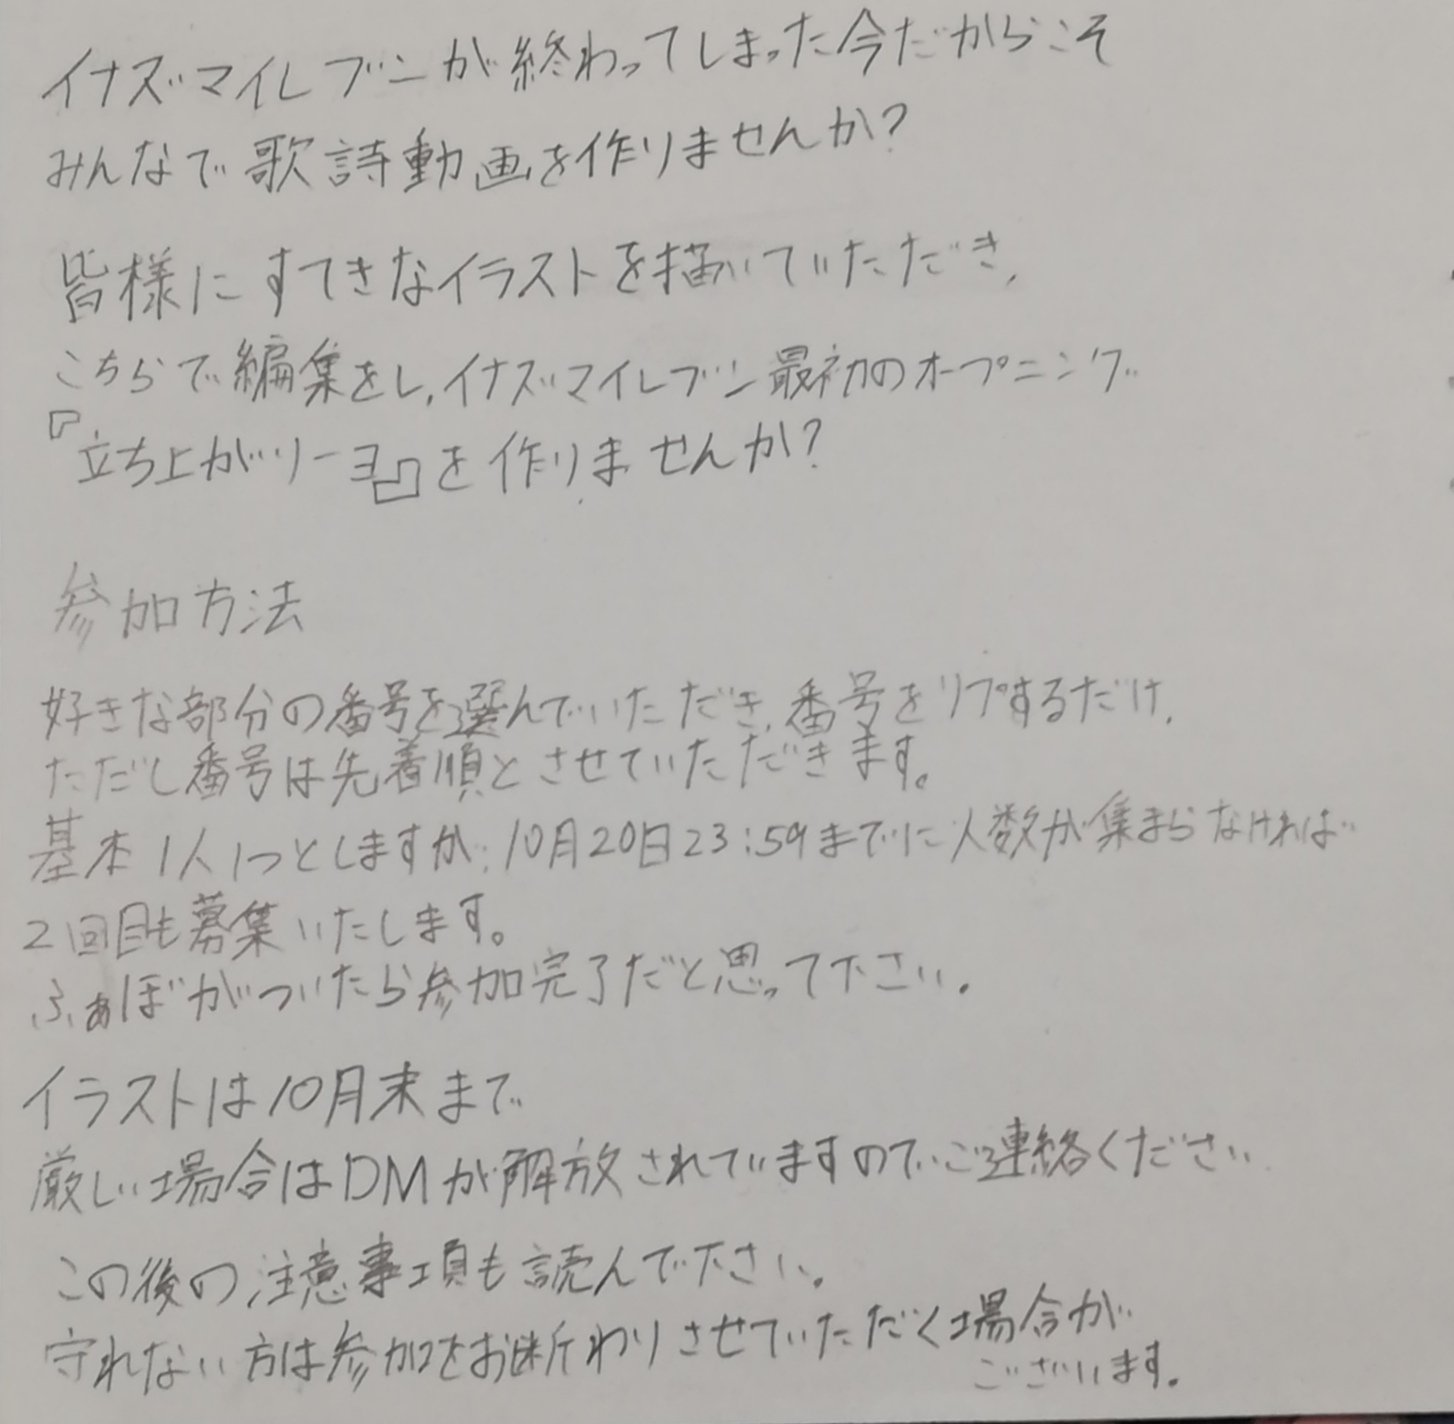 イナズマイレブンが終わってしまった今だからこそ
みんなで歌詩動画を作りませんか?
皆様にすてきなイラストを描いていただき、
こちらで編集をし、イナズマイレブン最初のオープニング
『立ち上がリーヨ』を作りませんか?
参加方法
好きな部分の番号を選んでいただき、番号をリプするだけ、
ただし番号は先着順とさせていただきます。
基本1人1つとしますが、10月20日23:59までに人数が集まらなければ
2回目も募集いたします。
ふぁぼがついたら参加完了だと思って下さい。
イラストは10月末まで
厳しい場合はDMが解放されていますのでご連絡ください
この後の注意事項も読んで下さい。
守れない方は参加をお断わりさせていただく場合が
ございます。